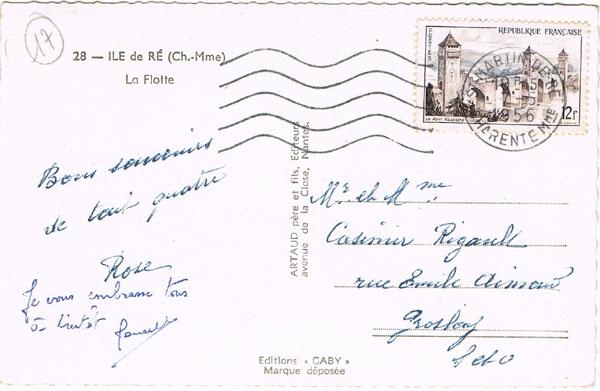 17
28 — ILE de RÉ (Ch.-Mme)
La Flotte
RÉPUBLIQUE FRANÇAISE
POSTES
12F
ST MARTIN-DE-RÉ
1956
CHARENTE Mme
Bons souvenirs
de tout quatre
Rose
Je vous embrasse tous
à bientôt
ARTAUD père et fils, Editeurs
avenue de la Close, Nantes.
Mr et Mme
Casimir Rigault
rue Emile Aimond
Groslay
S et O
Editions « GABY »
Marque déposée